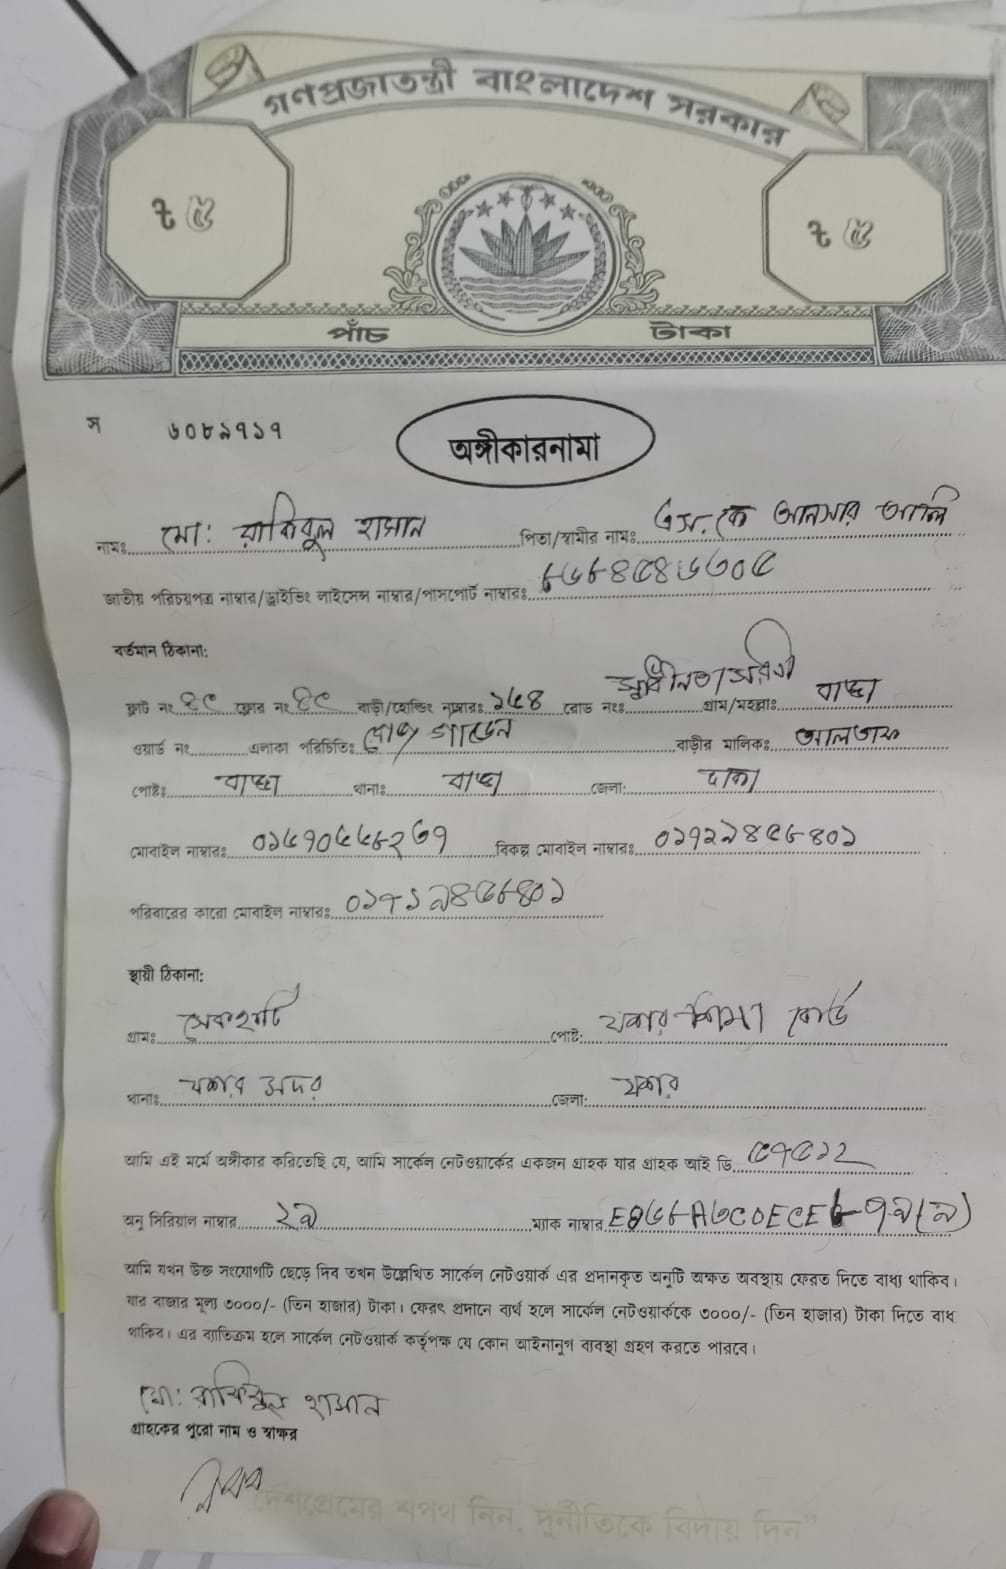 গণপ্রজাতন্ত্রী বাংলাদেশ সরকার
৳ ৫ ৳ ৫
পাঁচ টাকা
স ৬০৮৯৭১৭
অঙ্গীকারনামা
নামঃ মো: রাকিবুল হাসান পিতা/স্বামীর নামঃ এস. কে আনসার আলি
জাতীয় পরিচয়পত্র নাম্বার/ড্রাইভিং লাইসেন্স নাম্বার/পাসপোর্ট নাম্বারঃ
বর্তমান ঠিকানা:
ফ্লাট নং ফ্লোর নং বাড়ী/হোল্ডিং নম্বারঃ রোড নংঃ স্বাধীনতা সরণী গ্রাম/মহল্লাঃ বাড্ডা
ওয়ার্ড নং এলাকা পরিচিতিঃ গার্ডেন বাড়ীর মালিকঃ আলতাফ
পোষ্টঃ বাড্ডা থানাঃ বাড্ডা জেলা: ঢাকা
মোবাইল নাম্বারঃ বিকল্প মোবাইল নাম্বারঃ
পরিবারের কারো মোবাইল নাম্বারঃ
স্থায়ী ঠিকানা:
গ্রামঃ পোষ্ট: যশোর শিক্ষা বোর্ড
থানাঃ যশোর সদর জেলা: যশোর
আমি এই মর্মে অঙ্গীকার করিতেছি যে, আমি সার্কেল নেটওয়ার্কের একজন গ্রাহক যার গ্রাহক আই ডি
অনু সিরিয়াল নাম্বার ২৯ ম্যাক নাম্বার
আমি যখন উক্ত সংযোগটি ছেড়ে দিব তখন উল্লেখিত সার্কেল নেটওয়ার্ক এর প্রদানকৃত অনুটি অক্ষত অবস্থায় ফেরত দিতে বাধ্য থাকিব।
যার বাজার মূল্য ৩০০০/- (তিন হাজার) টাকা। ফেরৎ প্রদানে ব্যর্থ হলে সার্কেল নেটওয়ার্ককে ৩০০০/- (তিন হাজার) টাকা দিতে বাধ্য
থাকিব। এর ব্যতিক্রম হলে সার্কেল নেটওয়ার্ক কর্তৃপক্ষ যে কোন আইনানুগ ব্যবস্থা গ্রহণ করতে পারবে।
মো: রাকিবুল হাসান
গ্রাহকের পুরো নাম ও স্বাক্ষর
দেশপ্রেমের শপথ নিন, দুর্নীতিকে বিদায় দিন"